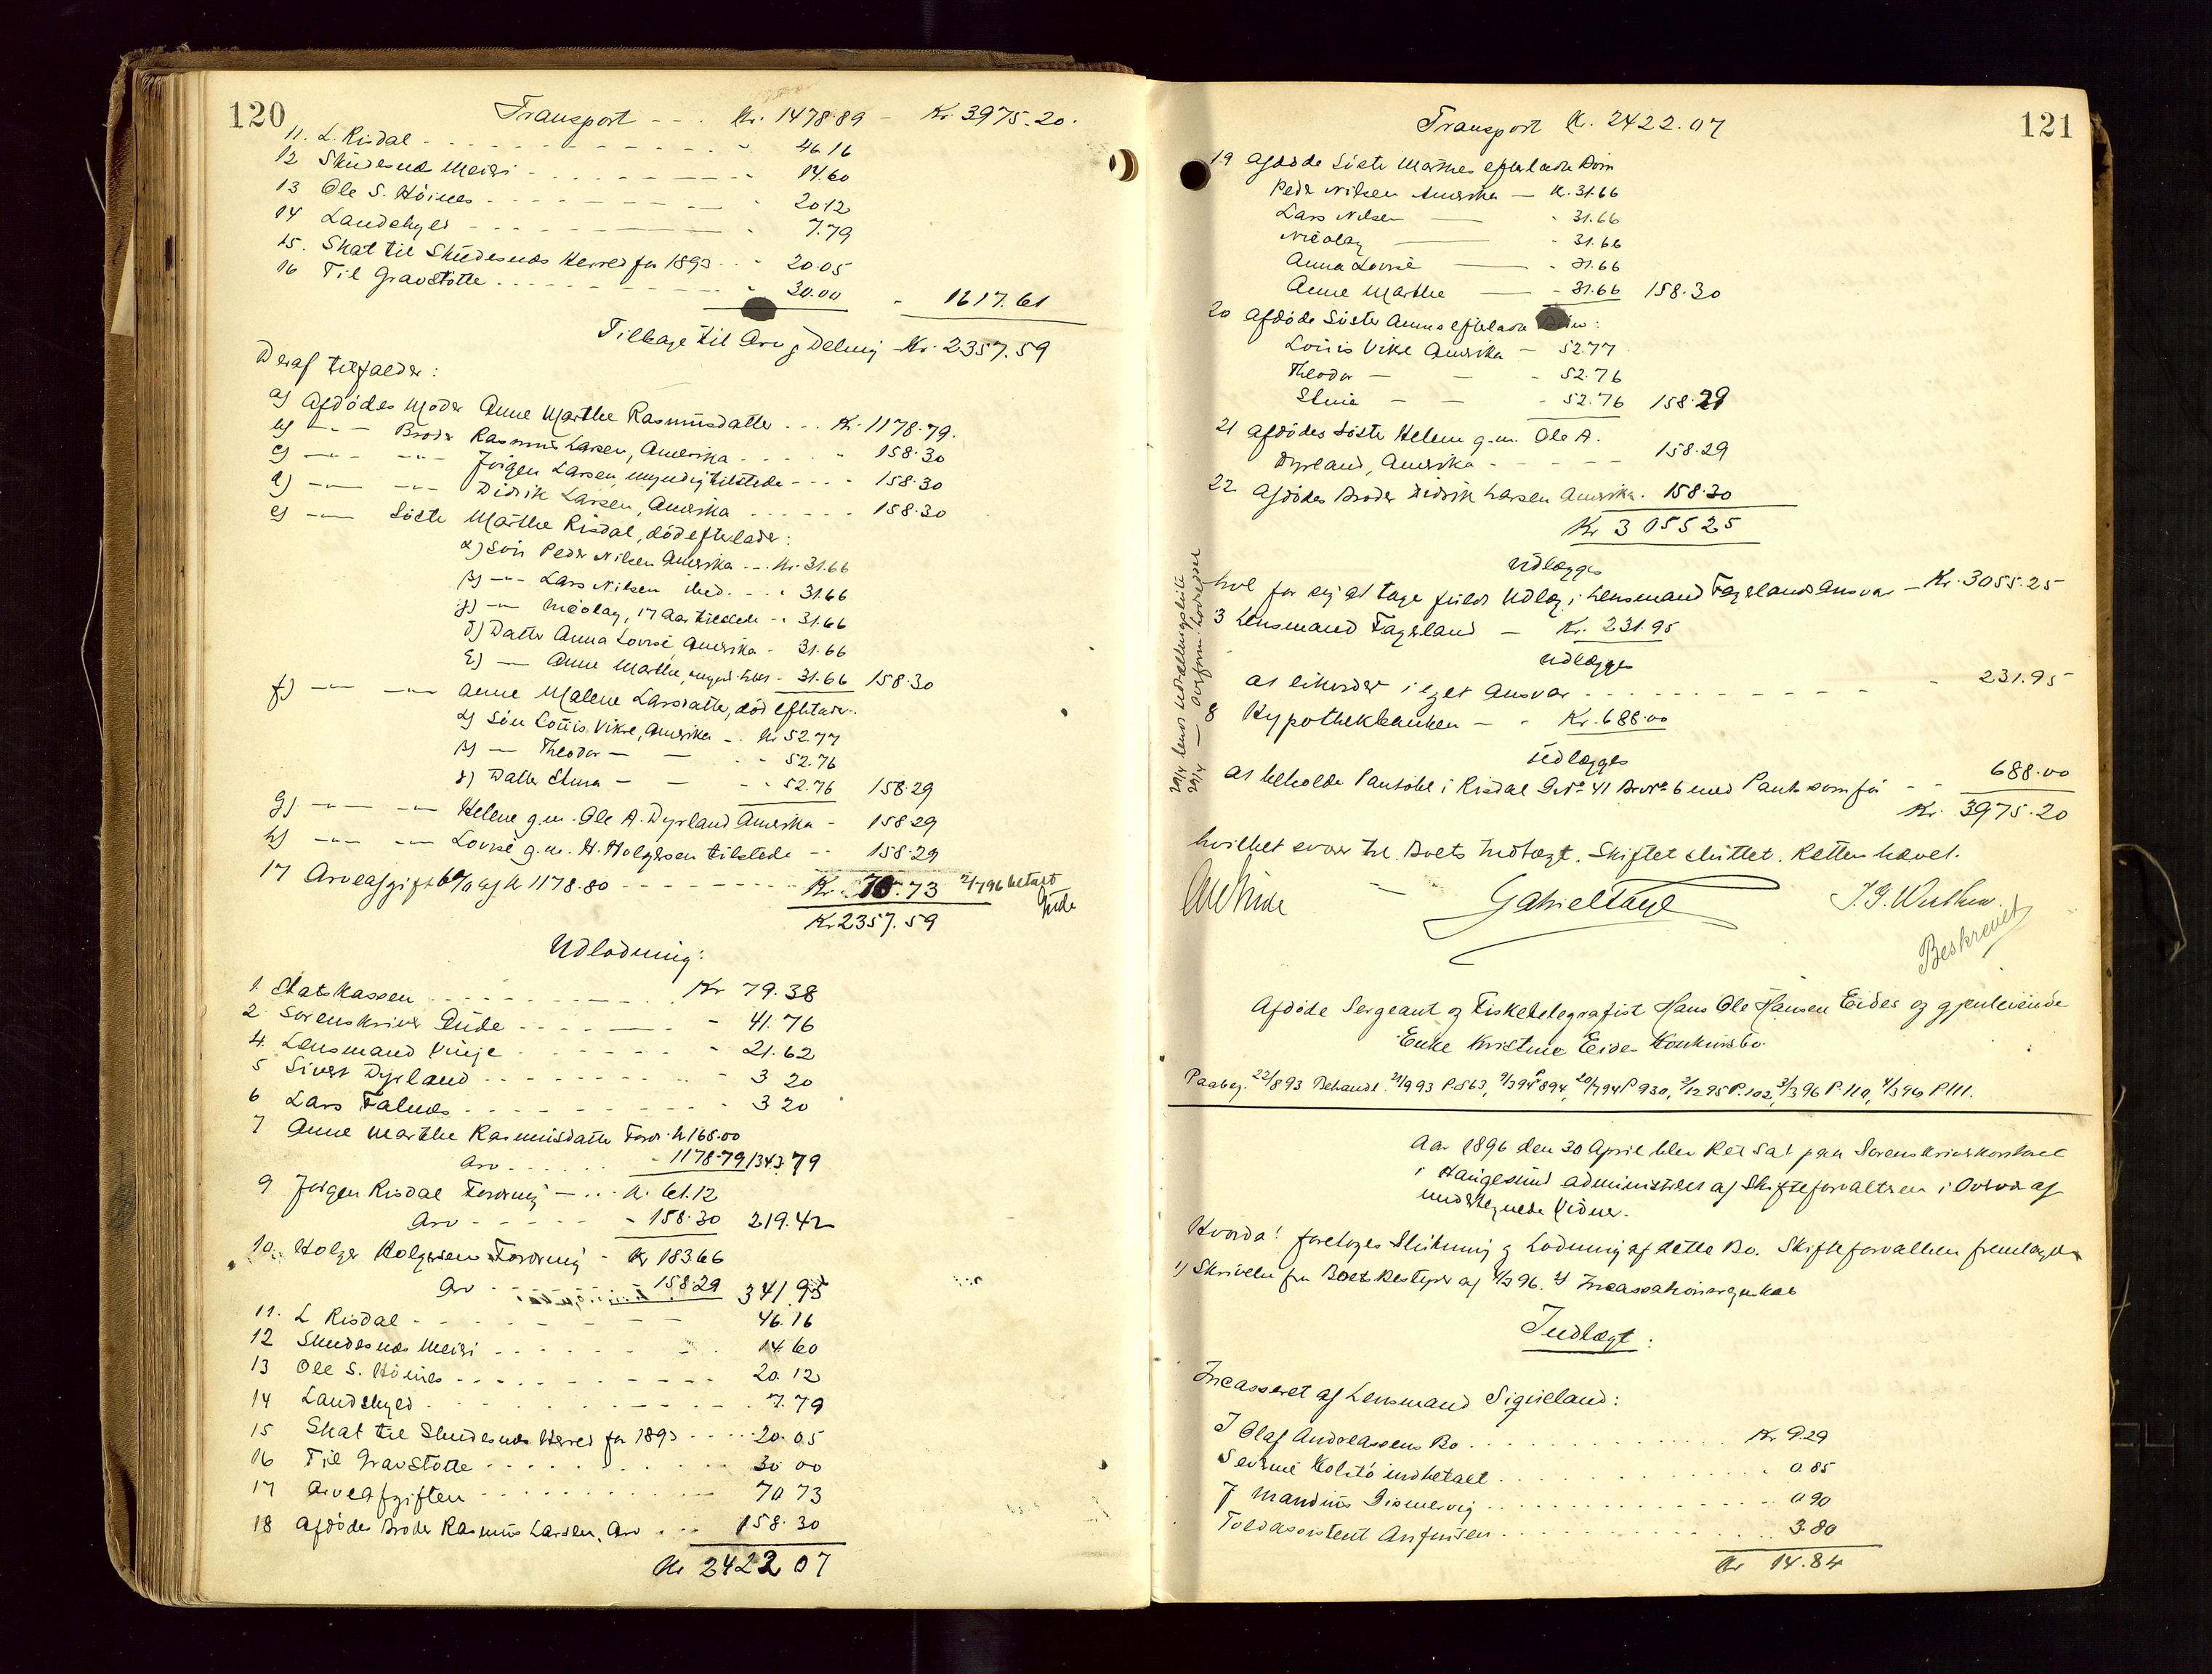 120
Transport - - - Kr. 1478.89 - Kr. 3975.20.
11. L. Risdal - - - 46.16
12 Skudesnæs Meieri - - - 14.60
13 Ole S. Höines - - - 20.12
14 Landskyld - - - 7.79
15. Skat til Skudesnæs Herred for 1893 - - - 20.05
16 Til Gravstötte - - - 30.00 - 1617.61
Tilbage til Arv og Deling Kr. 2357.59
Deraf tilfalder:
a) Afdödes Moder Anne Marthe Rasmusdatter - - - Kr. 1178.79.
b) -"- Broder Rasmus Larsen, Amerika - - - 158.30
c) -"- -"- Jörgen Larsen, myndig tilstede - - - 158.30
d) -"- -"- Didrik Larsen, Amerika - - - 158.30
e) -"- Söster Marthe Risdal, död efterlader:
α) Sön Peder Nilsen Amerika - - Kr. 31.66
β) -"- Lars Nilsen ibid. - - - 31.66
γ) -"- Nicolay, 17 Aar tilstede - - 31.66
δ) Datter Anna Lovise, Amerika - 31.66
ε) -"- Anne Marthe, mynd. tilst. - 31.66 158.30
f) -"- -"- Anne Malene Larsdatter, död efterlader:
α) Sön Louis Vikre, Amerika - Kr 52.77
β) -"- Theodor - - - 52.76
γ) Datter Stina - - - 52.76 158.29
g) -"- -"- Helene g.m. Ole A. Dyrland Amerika - 158.29
h) -"- -"- Lovise g.m. H. Holgersen tilstede - - 158.29
17 Arveafgift 6% af Kr 1178.80 - - - Kr. 70.73 2/7 96 betalt
Kr 2357.59
Udlodning:
1. Statskassen - - - Kr 79.38
2. Sorenskriver Eide - - - 41.76
4. Lensmand Vinje - - - 21.62
5 Sivert Dyrland - - - 3 20
6 Lars Falnes - - - 3 20
7 Anne Marthe Rasmusdatter Fordr. Kr 165.00
Arv - - - 1178.79 1343.79
9 Jörgen Risdal Fordring - - - Kr. 61.12
Arv - - - 158.30 219.42
10. Holger Holgersens Fordring - Kr 183 66
Arv - - - 158.29 341 95
11. L Risdal - - - 46.16
12 Skudesnæs Meieri - - - 14 60
13 Ole S. Höines - - - 20.12
14 Landskyld - - - 7.79
15 Skat til Skudesnæs Herred for 1893 - - - 20.05
16 Til Gravstötte - - - 30 00
17 Arveafgiften - - - 70 73
18 Afdödes Broder Rasmus Larsen, Arv - - - 158.30
Kr 2422 07
121
Transport Kr. 2422.07
19 Afdöde Söster Marthes efterladte Börn
Peder Nilsen Amerika - Kr. 31.66
Lars Nilsen - 31.66
Nicolay - 31.66
Anna Lovise - 31.66
Anne Marthe - 31.66 158.30
20 Afdöde Söster Annes efterladte Börn:
Louis Vikre Amerika - 52.77
Theodor - - - 52.76
Stina - - - 52.76 158.29
21 Afdödes Söster Helene g.m. Ole A.
Dyrland, Amerika - - - 158.29
22 Afdödes Broder Didrik Larsen Amerika. 158.30
Kr 3055 25
Udlægges
hver for sig at tage fuldt Udlæg i Lensmand Fagerlands Ansvar - Kr. 3055.25
3 Lensmand Fagerland - Kr. 231.95
Udlægges
at likvidere i eget Ansvar - - - 231.95
8 Hypothekbanken - - Kr. 688.00
Udlægges
at beholde Pantobl. i Risdal G.No. 41 Br.No. 6 med Pant som för - - 688.00
Kr. 3975.20
hvilket svarer til Boets Indtægt. Skiftet sluttet. Retten hævet.
Gabriel Tange
Beskrevet
Afdöde Sergeant og Fisketelegrafist Hans Ole Hansen Eides og gjenlevende
Enke Kristine Eides Konkursbo
Paabeg. 22/8 93 Behandl. 21/9 93 P. 863, 9/3 94 P 894, 20/7 94 P 930, 3/12 95 P. 102, 3/3 96 P. 110, 4/3 96 P. 111.
Aar 1896 den 30 April blev Ret sat paa Sorenskriverkontoret
i Haugesund administreret af Skifteforvalteren i Overvær af
undertegnede Vidner.
Hvorda! foretoges Slutning og Lodning af dette Bo. Skifteforvalteren fremlagde
1) Skrivelse fra Boets Bestyrer af 4/3 96. 2) Incassationsregnskab
Indtægt:
Incasseret af Lensmand Sigveland:
I Olaf Andreassens Bo - - - Kr. 9.29
Severine Kolstö indbetalt - - - 0.85
J Mandius Gismervig - - - 0 90
Toldassistent Arnfinsen - - - 3.80
Kr 14.84